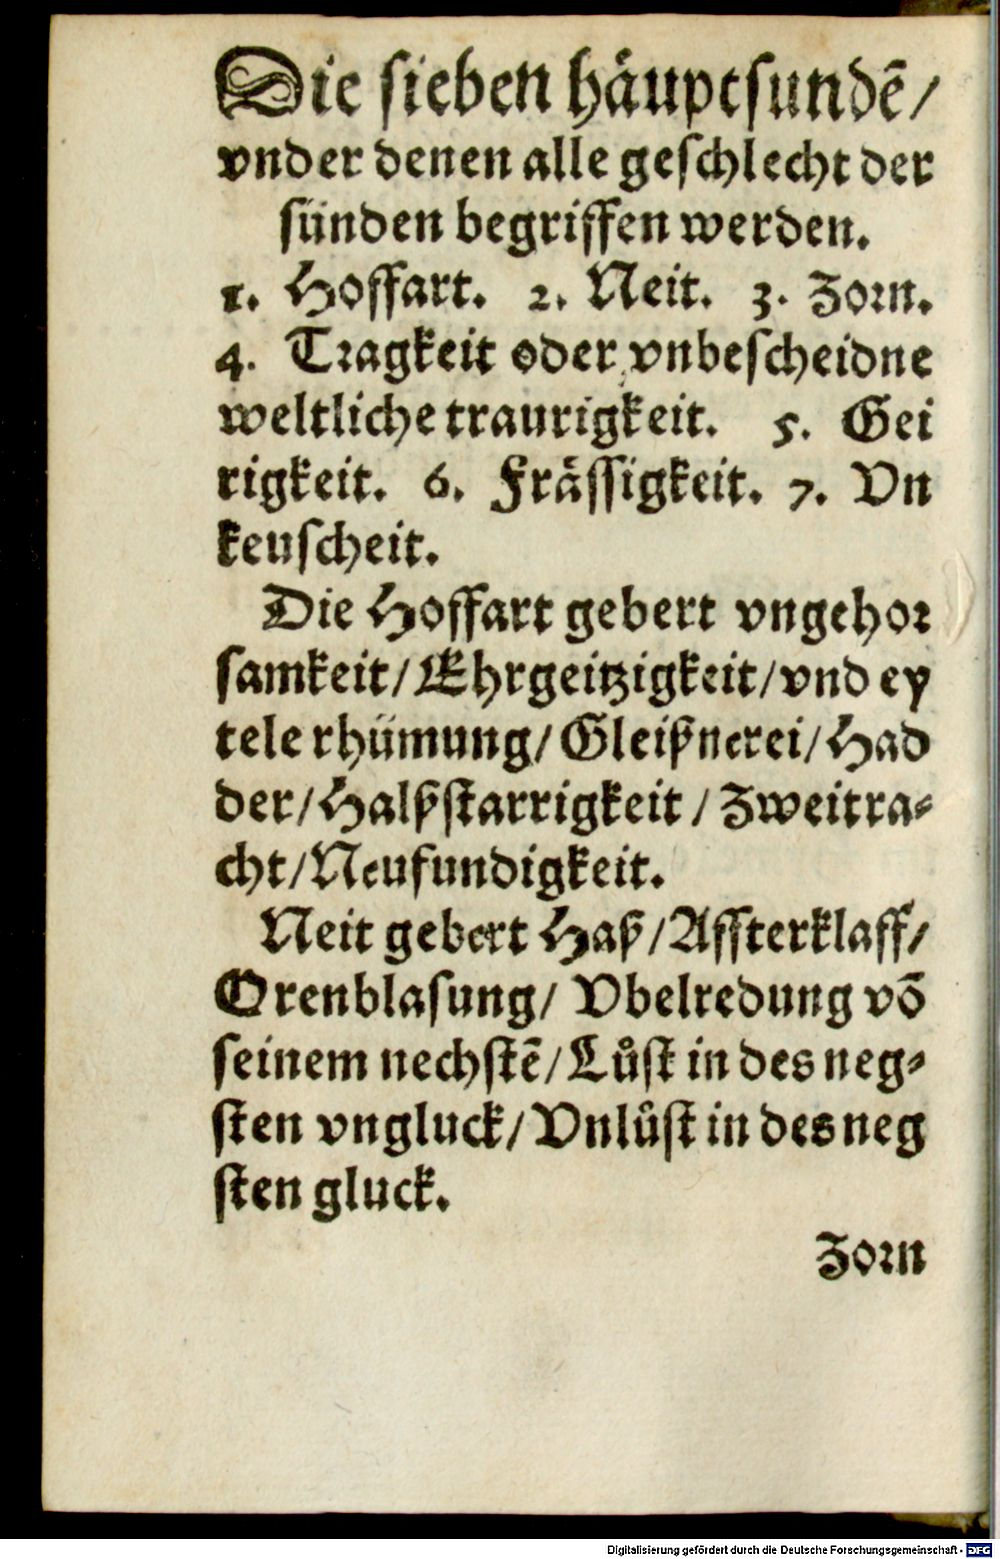 Die sieben häuptsundē/
vnder denen alle geschlecht der
sünden begriffen werden.
1. Hoffart. 2. Neit. 3. Zorn.
4. Tragkeit oder vnbescheidne
weltliche traurigkeit. 5. Gei
rigkeit. 6. Frässigkeit. 7. Vn
keuscheit.
Die Hoffart gebert vngehor
samkeit/Ehrgeitzigkeit/vnd ey
tele rhümung/Gleißnerei/Had
der/Halßstarrigkeit/Zweitra-
cht/Neufundigkeit.
Neit gebert Haß/Affsterklaff/
Orenblasung/Vbelredung vō
seinem nechstē/Lůst in des neg-
sten vngluck/Vnlůst in des neg
sten gluck.
Zorn
Digitalisierung gefördert durch die Deutsche Forschungsgemeinschaft - DFG